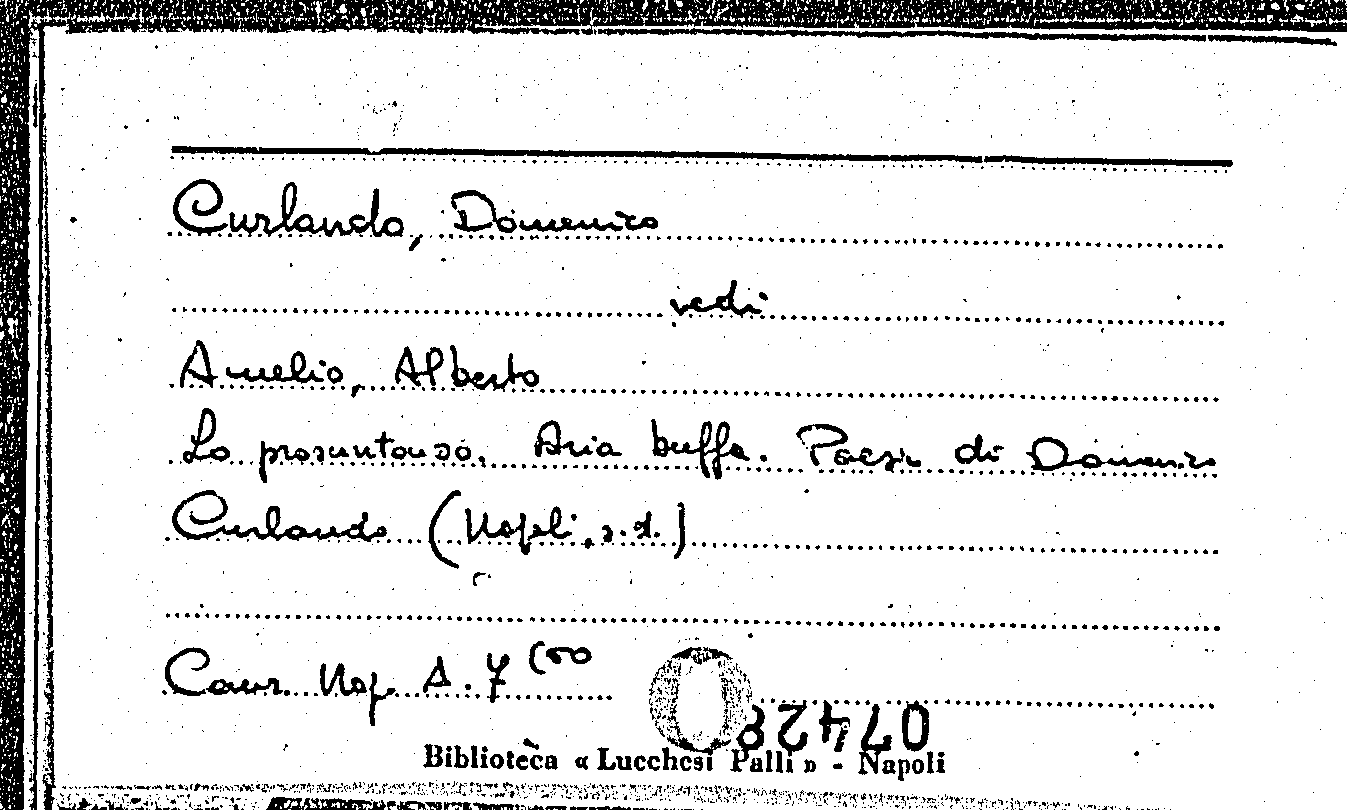 Curlando, Domenico
vedi
Amelio, Alberto
Lo prosuntouso. Aria buffa. Poesia di Domenico
Curlando (Napoli, s.d.)
Canz. Nap. A. 7
07428
Biblioteca « Lucchesi Palli » - Napoli